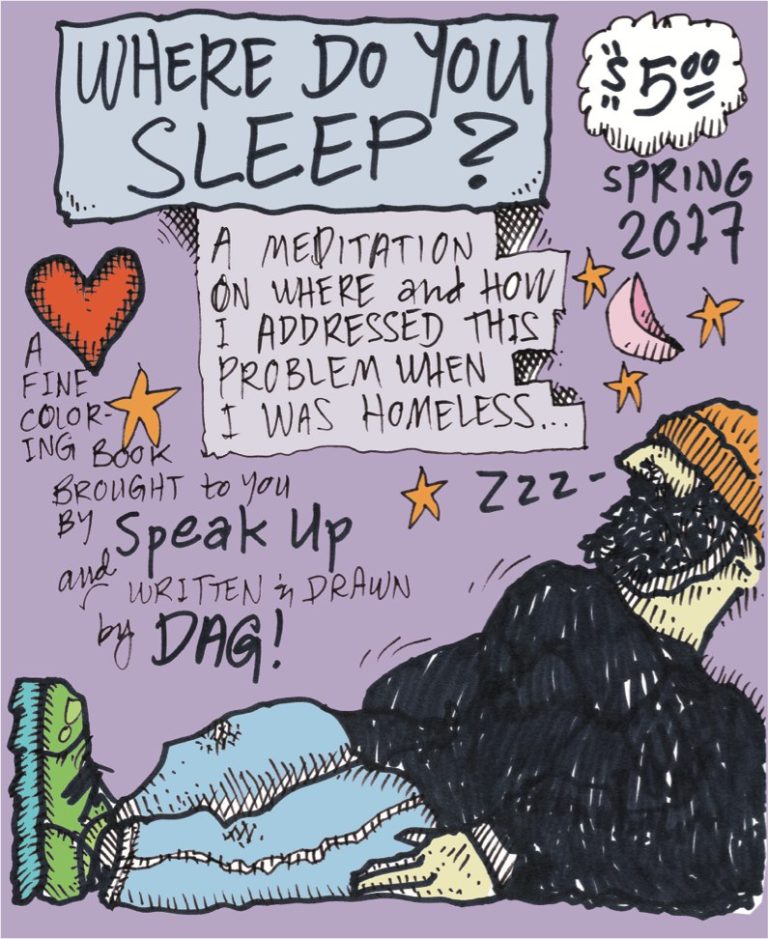 WHERE DO YOU
SLEEP?
"$5.00"
SPRING
2017
A MEDITATION
ON WHERE and HOW
I ADDRESSED THIS
PROBLEM WHEN
I WAS HOMELESS...
A
FINE
COLOR-
ING BOOK
BROUGHT to YOU
BY Speak Up
and WRITTEN 'n DRAWN
by DAG!
ZZZ-